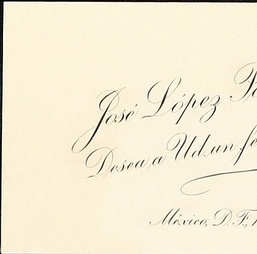 José López
Desea a Ud. un
México, D. F.,